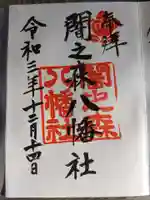 奉拝
闇之森八幡社
令和三年十二月十四日
闇之森
八幡社